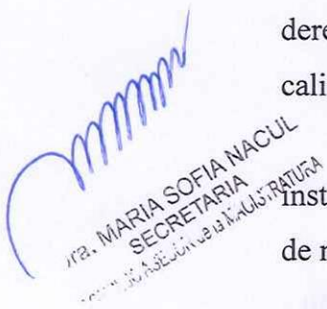 dere
cali
inst
de n
Dra. MARIA SOFIA NACUL
SECRETARIA
CONSEJO ASESOR de la MAGISTRATURA